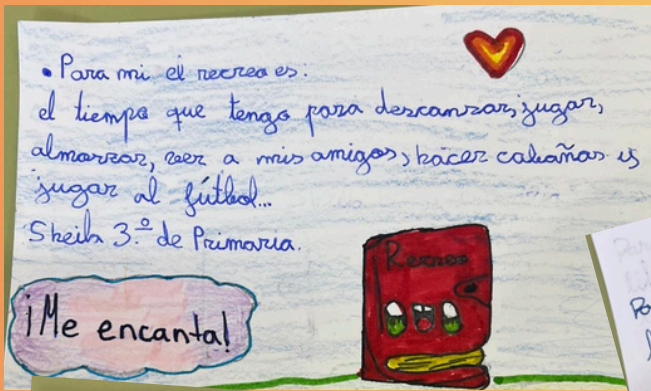 • Para mi el recreo es:
el tiempo que tengo para descansar, jugar,
almorzar, ver a mis amigos, hacer cabañas y
jugar al fútbol...
Sheila 3.º de Primaria.
¡Me encanta!
Recreo